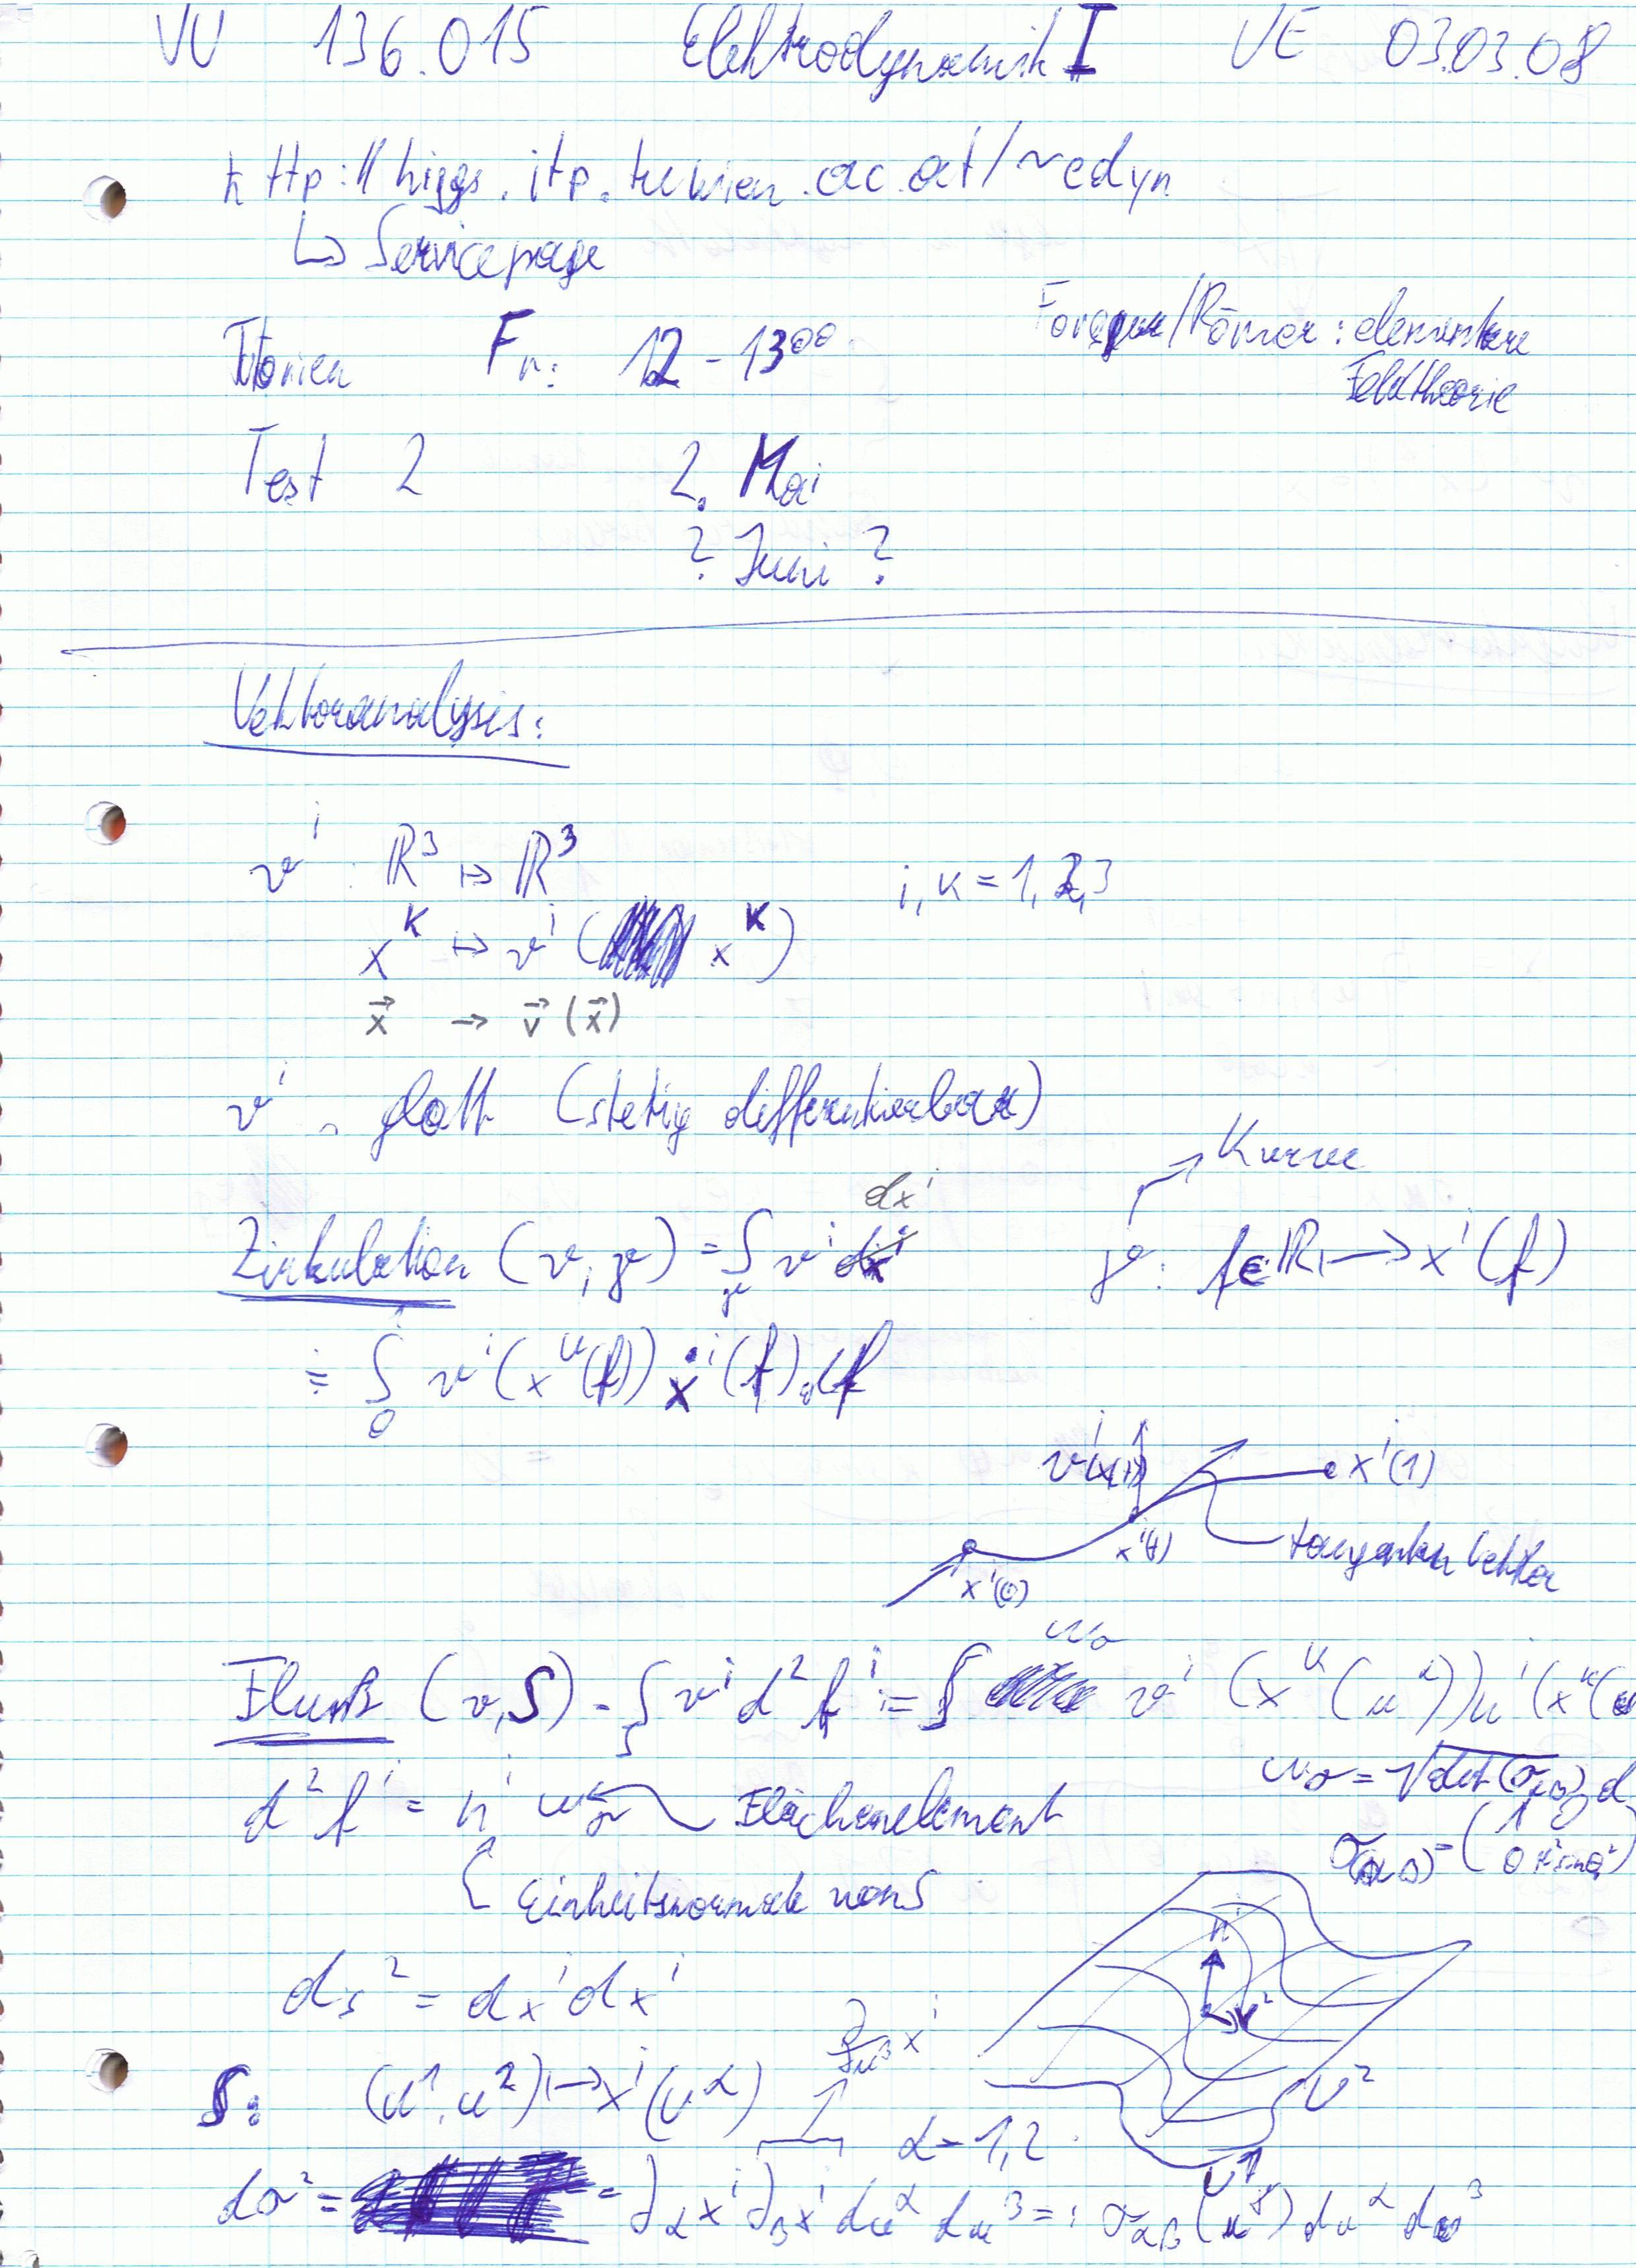 VU 136.015 Elektrodynamik I VE 03.03.08
http://higgs.itp.tuwien.ac.at/~edyn
↳ Servicepage
Tutorien Fr: 12 - 13⁰⁰
/Römer: elementare
Feldtheorie
Test 2 2. Mai
? Juni ?
Vektoranalysis:
vⁱ : ℝ³ ↦ ℝ³ i, k = 1,2,3
xᵏ ↦ vⁱ ( xᵏ)
x⃗ → v⃗ (x⃗)
vⁱ glatt (stetig differentierbar)
Kurve
dxⁱ
Zirkulation (v, γ) = ∫γ vⁱ dxⁱ γ: t∈ℝ ↦ xⁱ(t)
= ∫₀ vⁱ(xᵏ(t)) ẋⁱ(t).dt
vⁱ(x(t)) xⁱ(1)
xⁱ(t) tangentenvektor
xⁱ(0)
ωσ
Fluss (v,S) = ∫S vⁱ d²fⁱ = ∫ vⁱ (xᵏ(uᵅ))nⁱ(xᵏ(u
d²fⁱ = nⁱ ωσ Flächenelement ωσ = √det(σαβ) d
σ(αβ) = (1 0 0 r²sin²θ)
Einheitsnormale von S
nⁱ
ds² = dxⁱdxⁱ
∂/∂uᵝ xⁱ
S: (u¹,u²) ↦ xⁱ(uᵅ) U²
α = 1,2
U¹
dσ² = = ∂αxⁱ∂βxⁱ duᵅ duᵝ =: σαβ(uᵟ) duᵅ duᵝ